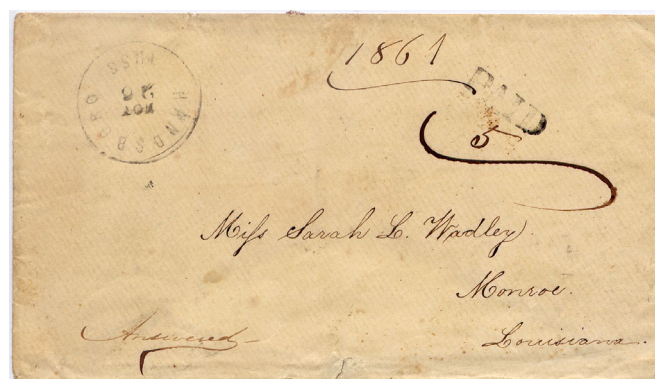 HANDSBORO
NOV
MISS
1861
PAID
5
Miſs Sarah L. Wadley.
Monroe.
Louisiana.
Answered